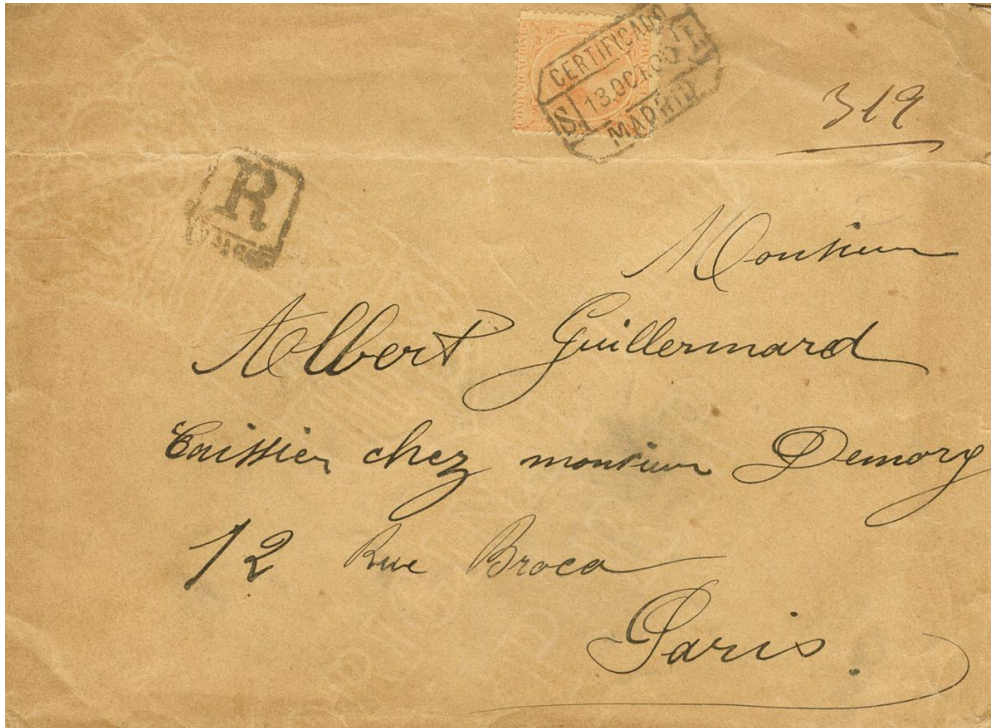 COMUNICACIONES
CERTIFICADO
13.OCT.90
MADRID
319
R
Monsieur
Albert Guillermard
Caissier chez monsieur Demory
12 Rue Broca
Paris.